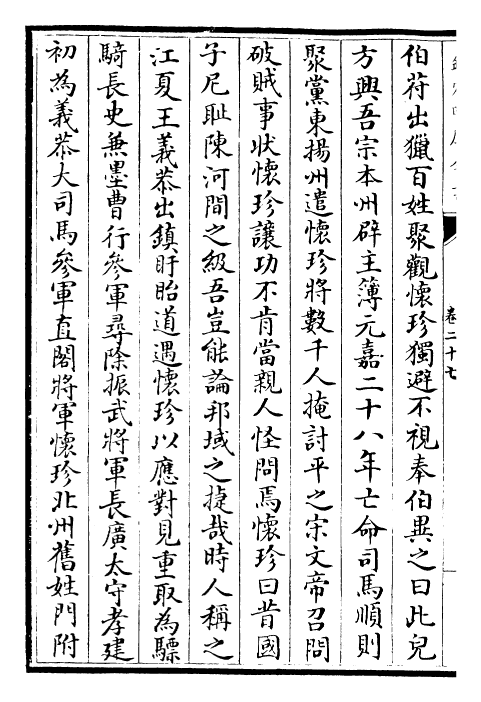 伯符出獵百姓聚觀懷珍獨避不視奉伯異之曰此兒
方興吾宗本州辟主簿元嘉二十八年亡命司馬順則
聚黨東揚州遣懷珍將數千人掩討平之宋文帝召問
破賊事狀懷珍讓功不肯當親人怪問焉懷珍曰昔國
子尼耻陳河間之級吾豈能論邦域之捷哉時人稱之
江夏王義恭出鎮盱眙道遇懷珍以應對見重取為驃
騎長史兼墨曹行參軍尋除振武將軍長廣太守孝建
初為義恭大司馬參軍直閤將軍懷珍北州舊姓門附
卷二十七